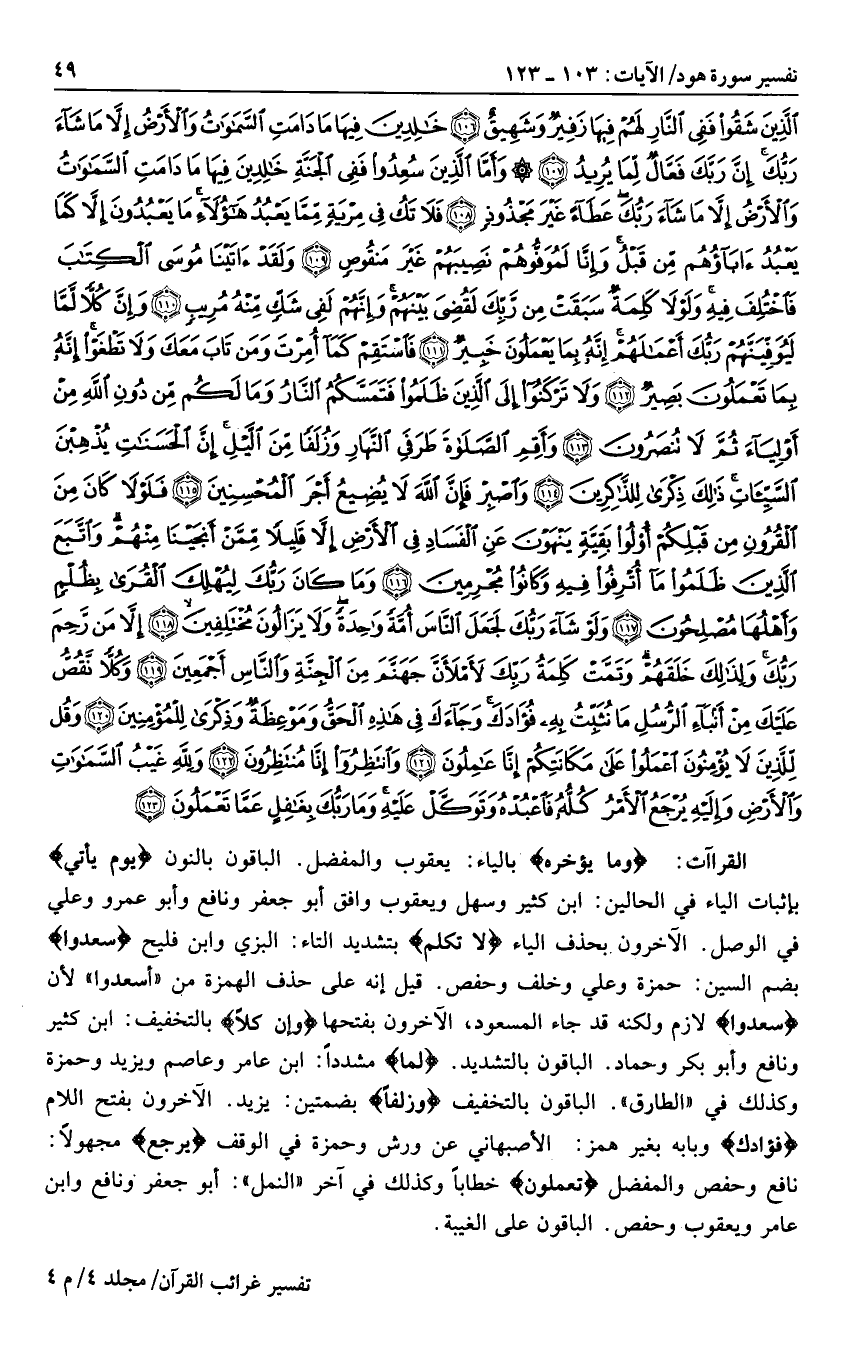 تفسير سورة هود/ الآيات: ١٠٣ - ١٢٣
٤٩
ٱلَّذِينَ شَقُوا۟ فَفِى ٱلنَّارِ لَهُمْ فِيهَا زَفِيرٌ وَشَهِيقٌ ﴿١٠٦﴾ خَٰلِدِينَ فِيهَا مَا دَامَتِ ٱلسَّمَٰوَٰتُ وَٱلْأَرْضُ إِلَّا مَا شَآءَ
رَبُّكَ ۚ إِنَّ رَبَّكَ فَعَّالٌ لِّمَا يُرِيدُ ﴿١٠٧﴾ ۞ وَأَمَّا ٱلَّذِينَ سُعِدُوا۟ فَفِى ٱلْجَنَّةِ خَٰلِدِينَ فِيهَا مَا دَامَتِ ٱلسَّمَٰوَٰتُ
وَٱلْأَرْضُ إِلَّا مَا شَآءَ رَبُّكَ ۖ عَطَآءً غَيْرَ مَجْذُوذٍ ﴿١٠٨﴾ فَلَا تَكُ فِى مِرْيَةٍ مِّمَّا يَعْبُدُ هَٰٓؤُلَآءِ ۚ مَا يَعْبُدُونَ إِلَّا كَمَا
يَعْبُدُ ءَابَآؤُهُم مِّن قَبْلُ ۚ وَإِنَّا لَمُوَفُّوهُمْ نَصِيبَهُمْ غَيْرَ مَنقُوصٍ ﴿١٠٩﴾ وَلَقَدْ ءَاتَيْنَا مُوسَى ٱلْكِتَٰبَ
فَٱخْتُلِفَ فِيهِ ۚ وَلَوْلَا كَلِمَةٌ سَبَقَتْ مِن رَّبِّكَ لَقُضِىَ بَيْنَهُمْ ۚ وَإِنَّهُمْ لَفِى شَكٍّ مِّنْهُ مُرِيبٍ ﴿١١٠﴾ وَإِنَّ كُلًّا لَّمَّا
لَيُوَفِّيَنَّهُمْ رَبُّكَ أَعْمَٰلَهُمْ ۚ إِنَّهُۥ بِمَا يَعْمَلُونَ خَبِيرٌ ﴿١١١﴾ فَٱسْتَقِمْ كَمَآ أُمِرْتَ وَمَن تَابَ مَعَكَ وَلَا تَطْغَوْا۟ ۚ إِنَّهُۥ
بِمَا تَعْمَلُونَ بَصِيرٌ ﴿١١٢﴾ وَلَا تَرْكَنُوٓا۟ إِلَى ٱلَّذِينَ ظَلَمُوا۟ فَتَمَسَّكُمُ ٱلنَّارُ وَمَا لَكُم مِّن دُونِ ٱللَّهِ مِنْ
أَوْلِيَآءَ ثُمَّ لَا تُنصَرُونَ ﴿١١٣﴾ وَأَقِمِ ٱلصَّلَوٰةَ طَرَفَىِ ٱلنَّهَارِ وَزُلَفًا مِّنَ ٱلَّيْلِ ۚ إِنَّ ٱلْحَسَنَٰتِ يُذْهِبْنَ
ٱلسَّيِّـَٔاتِ ۚ ذَٰلِكَ ذِكْرَىٰ لِلذَّٰكِرِينَ ﴿١١٤﴾ وَٱصْبِرْ فَإِنَّ ٱللَّهَ لَا يُضِيعُ أَجْرَ ٱلْمُحْسِنِينَ ﴿١١٥﴾ فَلَوْلَا كَانَ مِنَ
ٱلْقُرُونِ مِن قَبْلِكُمْ أُو۟لُوا۟ بَقِيَّةٍ يَنْهَوْنَ عَنِ ٱلْفَسَادِ فِى ٱلْأَرْضِ إِلَّا قَلِيلًا مِّمَّنْ أَنجَيْنَا مِنْهُمْ ۗ وَٱتَّبَعَ
ٱلَّذِينَ ظَلَمُوا۟ مَآ أُتْرِفُوا۟ فِيهِ وَكَانُوا۟ مُجْرِمِينَ ﴿١١٦﴾ وَمَا كَانَ رَبُّكَ لِيُهْلِكَ ٱلْقُرَىٰ بِظُلْمٍ
وَأَهْلُهَا مُصْلِحُونَ ﴿١١٧﴾ وَلَوْ شَآءَ رَبُّكَ لَجَعَلَ ٱلنَّاسَ أُمَّةً وَٰحِدَةً ۖ وَلَا يَزَالُونَ مُخْتَلِفِينَ ﴿١١٨﴾ إِلَّا مَن رَّحِمَ
رَبُّكَ ۚ وَلِذَٰلِكَ خَلَقَهُمْ ۗ وَتَمَّتْ كَلِمَةُ رَبِّكَ لَأَمْلَأَنَّ جَهَنَّمَ مِنَ ٱلْجِنَّةِ وَٱلنَّاسِ أَجْمَعِينَ ﴿١١٩﴾ وَكُلًّا نَّقُصُّ
عَلَيْكَ مِنْ أَنۢبَآءِ ٱلرُّسُلِ مَا نُثَبِّتُ بِهِۦ فُؤَادَكَ ۚ وَجَآءَكَ فِى هَٰذِهِ ٱلْحَقُّ وَمَوْعِظَةٌ وَذِكْرَىٰ لِلْمُؤْمِنِينَ ﴿١٢٠﴾ وَقُل
لِّلَّذِينَ لَا يُؤْمِنُونَ ٱعْمَلُوا۟ عَلَىٰ مَكَانَتِكُمْ إِنَّا عَٰمِلُونَ ﴿١٢١﴾ وَٱنتَظِرُوٓا۟ إِنَّا مُنتَظِرُونَ ﴿١٢٢﴾ وَلِلَّهِ غَيْبُ ٱلسَّمَٰوَٰتِ
وَٱلْأَرْضِ وَإِلَيْهِ يُرْجَعُ ٱلْأَمْرُ كُلُّهُۥ فَٱعْبُدْهُ وَتَوَكَّلْ عَلَيْهِ ۚ وَمَا رَبُّكَ بِغَٰفِلٍ عَمَّا تَعْمَلُونَ ﴿١٢٣﴾
القراآت: ﴿وما يؤخره﴾ بالياء: يعقوب والمفضل. الباقون بالنون ﴿يوم يأتي﴾
بإثبات الياء في الحالين: ابن كثير وسهل ويعقوب وافق أبو جعفر ونافع وأبو عمرو وعلي
في الوصل. الآخرون بحذف الياء ﴿لا تكلم﴾ بتشديد التاء: البزي وابن فليح ﴿سعدوا﴾
بضم السين: حمزة وعلي وخلف وحفص. قيل إنه على حذف الهمزة من «أسعدوا» لأن
﴿سعدوا﴾ لازم ولكنه قد جاء المسعود، الآخرون بفتحها ﴿وإن كلاً﴾ بالتخفيف: ابن كثير
ونافع وأبو بكر وحماد. الباقون بالتشديد. ﴿لما﴾ مشدداً: ابن عامر وعاصم ويزيد وحمزة
وكذلك في «الطارق». الباقون بالتخفيف ﴿وزلفاً﴾ بضمتين: يزيد. الآخرون بفتح اللام
﴿فؤادك﴾ وبابه بغير همز: الأصبهاني عن ورش وحمزة في الوقف ﴿يرجع﴾ مجهولاً:
نافع وحفص والمفضل ﴿تعملون﴾ خطاباً وكذلك في آخر «النمل»: أبو جعفر ونافع وابن
عامر ويعقوب وحفص. الباقون على الغيبة.
تفسير غرائب القرآن/ مجلد ٤/ م ٤